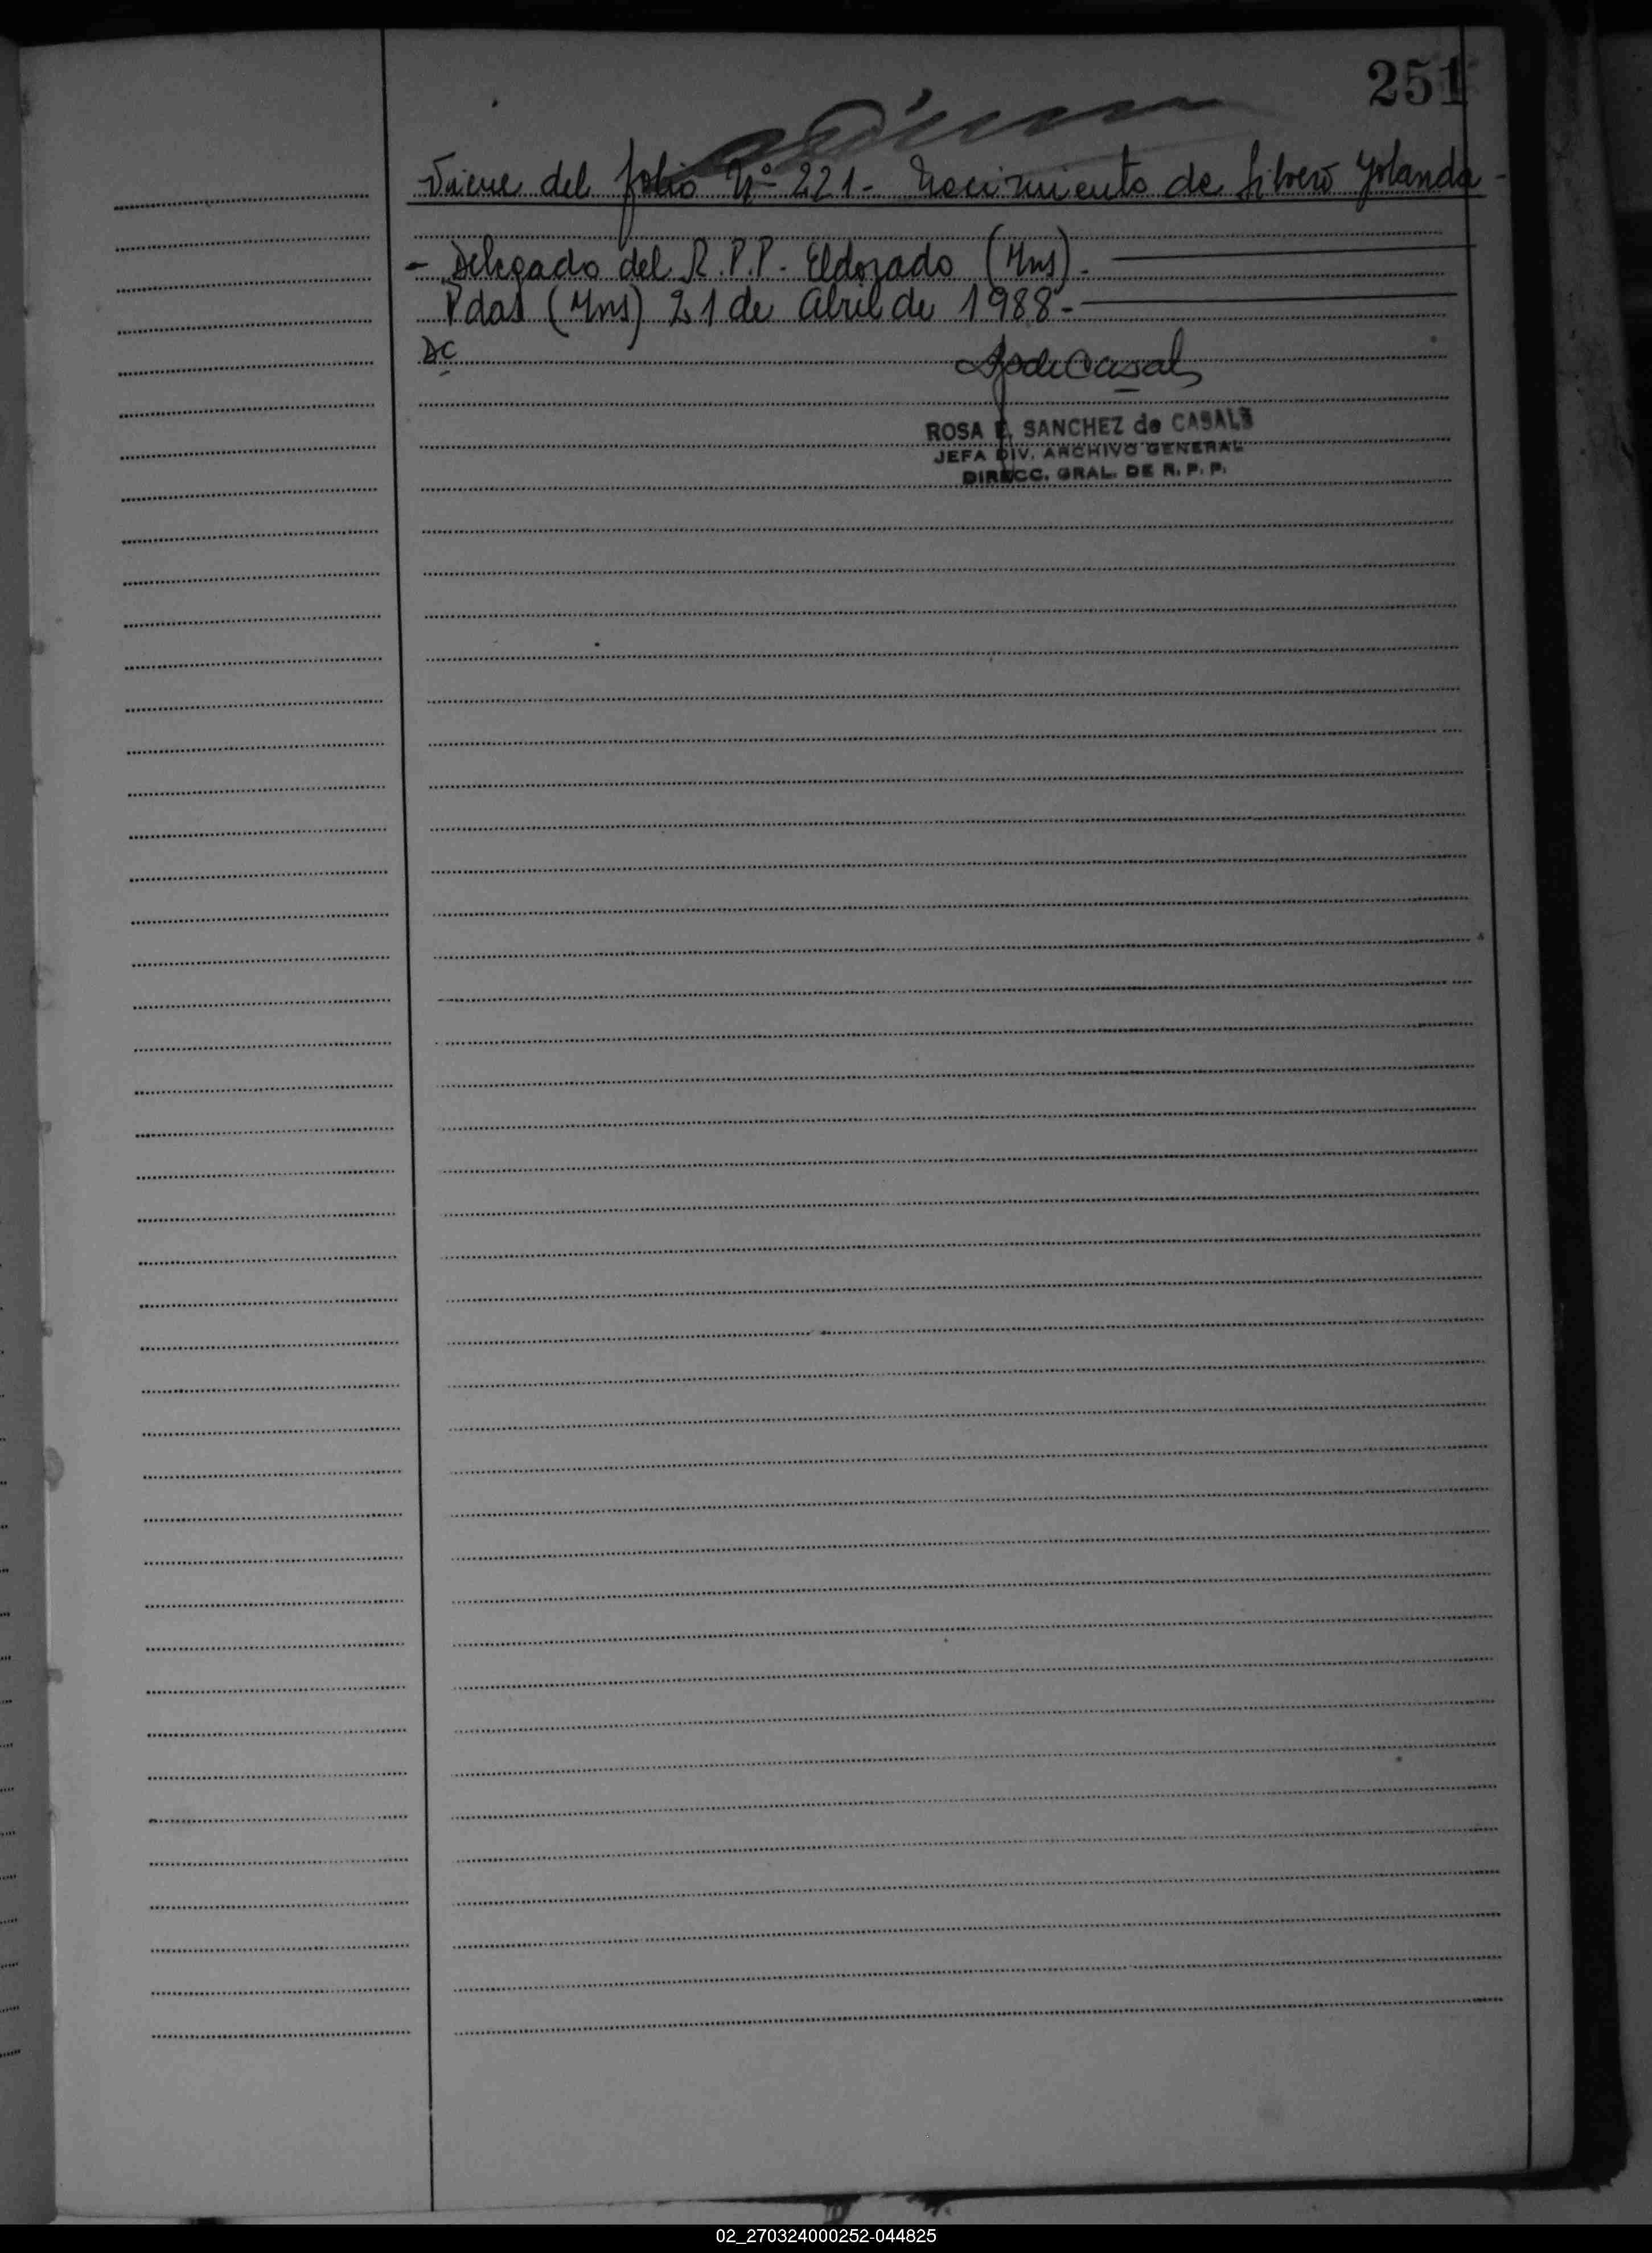 251
Viene del folio Nº 221 - Nacimiento de Silvero Yolanda -
- Delegado del R.P.P. Eldorado (Mns). -
Pdas (Mns) 21 de Abril de 1988 -
DC
ROSA E. SANCHEZ de CASALS
JEFA DIV. ARCHIVO GENERAL
DIRECC. GRAL. DE R. P. P.
02_270324000252-044825